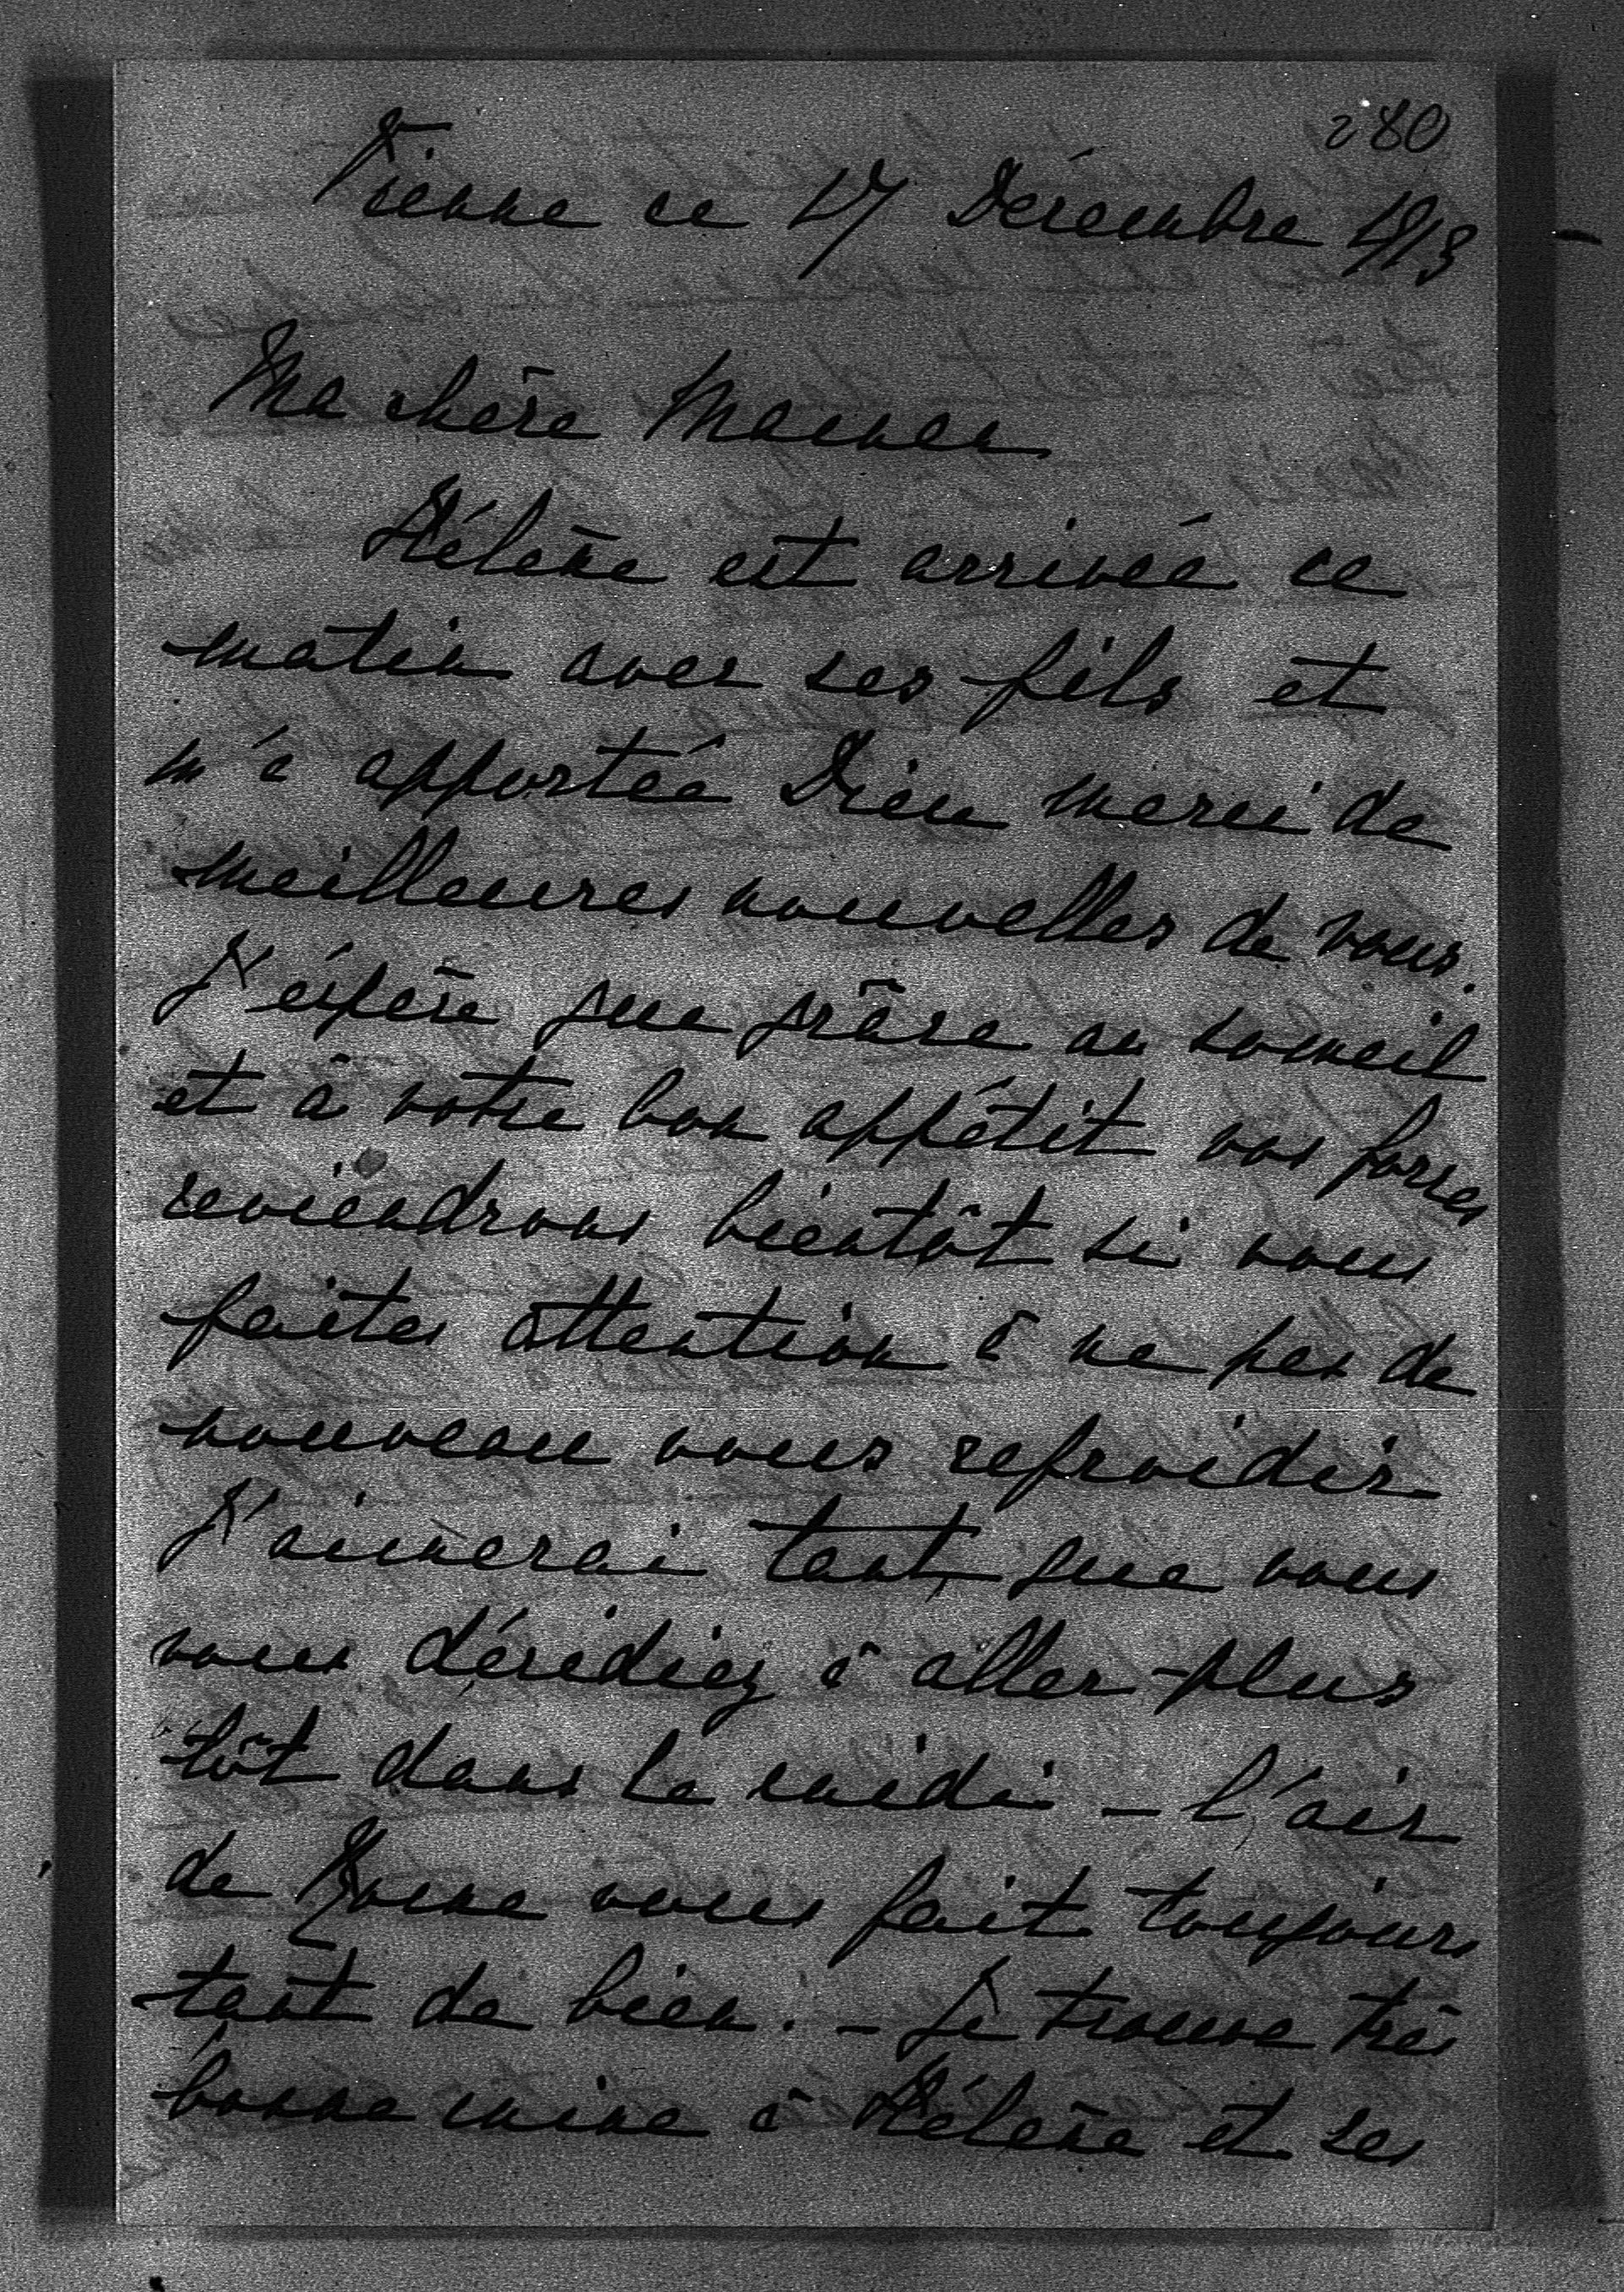 280
Vienne ce 17 Décembre 1913
Ma chère Maman
Hélène est arrivée ce
matin avec ses fils et
m'a apportée Dieu merci de
meilleures nouvelles de vous.
J'éspère que grâce au someil
et à votre bon appétit vos forces
reviendrons bientôt si vous
faites attention à ne pas de
nouveau vous refroidir
J'aimerai tant que vous
vous décidiez à aller plus
tôt dans le midi – l'air
de vous fait toujours
tant de bien. – Je trouve très
bonne mine à Hélène et ses